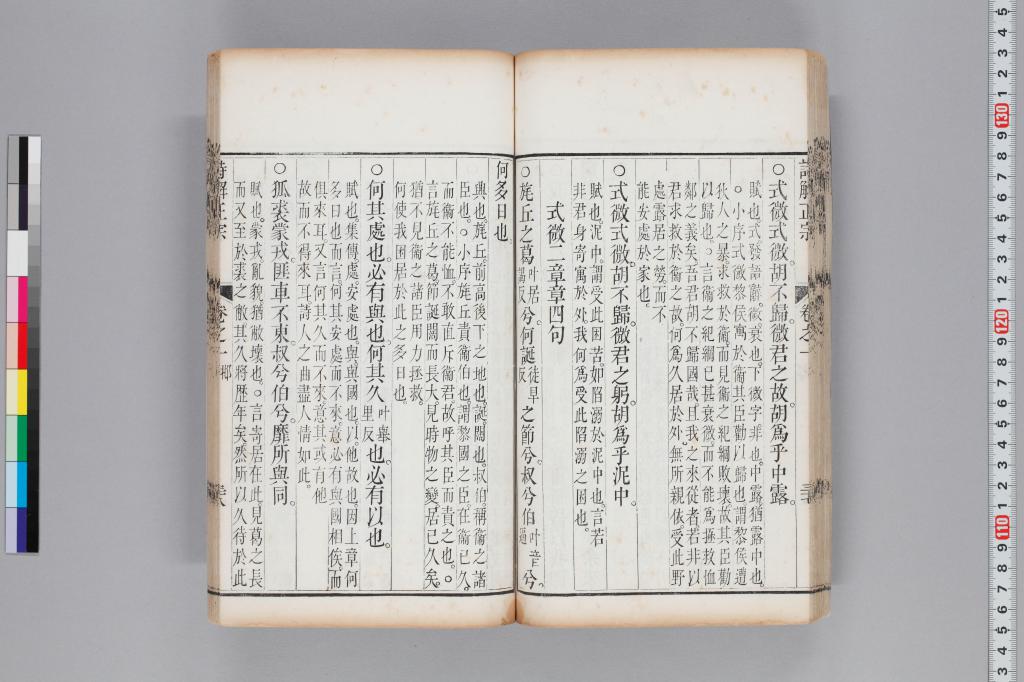 詩解正宗
卷之一
○式微式微。胡不歸。微君之故。胡爲乎中露。
賦也。式發語辭。微衰也。下微字非也。中露猶露中也。
○小序式微黎侯寓於衞其臣勸以歸也謂黎侯遭
狄人之暴求救於衞而見衞之紀綱敗壞故其臣勸
以歸也。○言衞之紀綱已甚衰微而不能爲拯救恤
鄰之義矣吾君胡不歸國哉且我之來從者若非以
君求救於衞之故何爲久居於外無所親依受此野
處露居之勞而不
能安處於家也。
○式微式微。胡不歸。微君之躬。胡爲乎泥中。
賦也。泥中。謂受此困苦。如陷溺於泥中也。言若
非君身寄寓於外我何爲受此陷溺之困也。
式微二章章四句
○旄丘之葛叶居謁反兮。何誕徒旱反之節兮。叔兮伯叶音逼兮。
何多日也。
興也。旄丘前高後下之地也。誕闊也。叔伯稱衞之諸
臣也。○小序旄丘責衞伯也謂黎國之臣在衞已久
而衞不能恤不敢直斥衞君故呼其臣而責之也。○
言旄丘之葛節誕闊而長大。見時物之變居已久矣。
猶不見衞之諸臣用力拯救。
何使我困居於此之多日也。
○何其處也。必有與也。何其久叶舉里反也。必有以也。
賦也。集傳處安處也與與國也。以。他故也因上章何
多日也而言何其安處而不來意必有與國相俟而
俱來耳又言何其久而不來意其或有他
故而不得來耳詩人之曲盡人情如此。
○狐裘蒙戎。匪車不東。叔兮伯兮。靡所與同。
賦也。蒙戎亂貌猶敝壞也。○言寄居在此見葛之長
而又至於裘之敝其久將歷年矣然所以久待於此
詩解正宗
卷之一